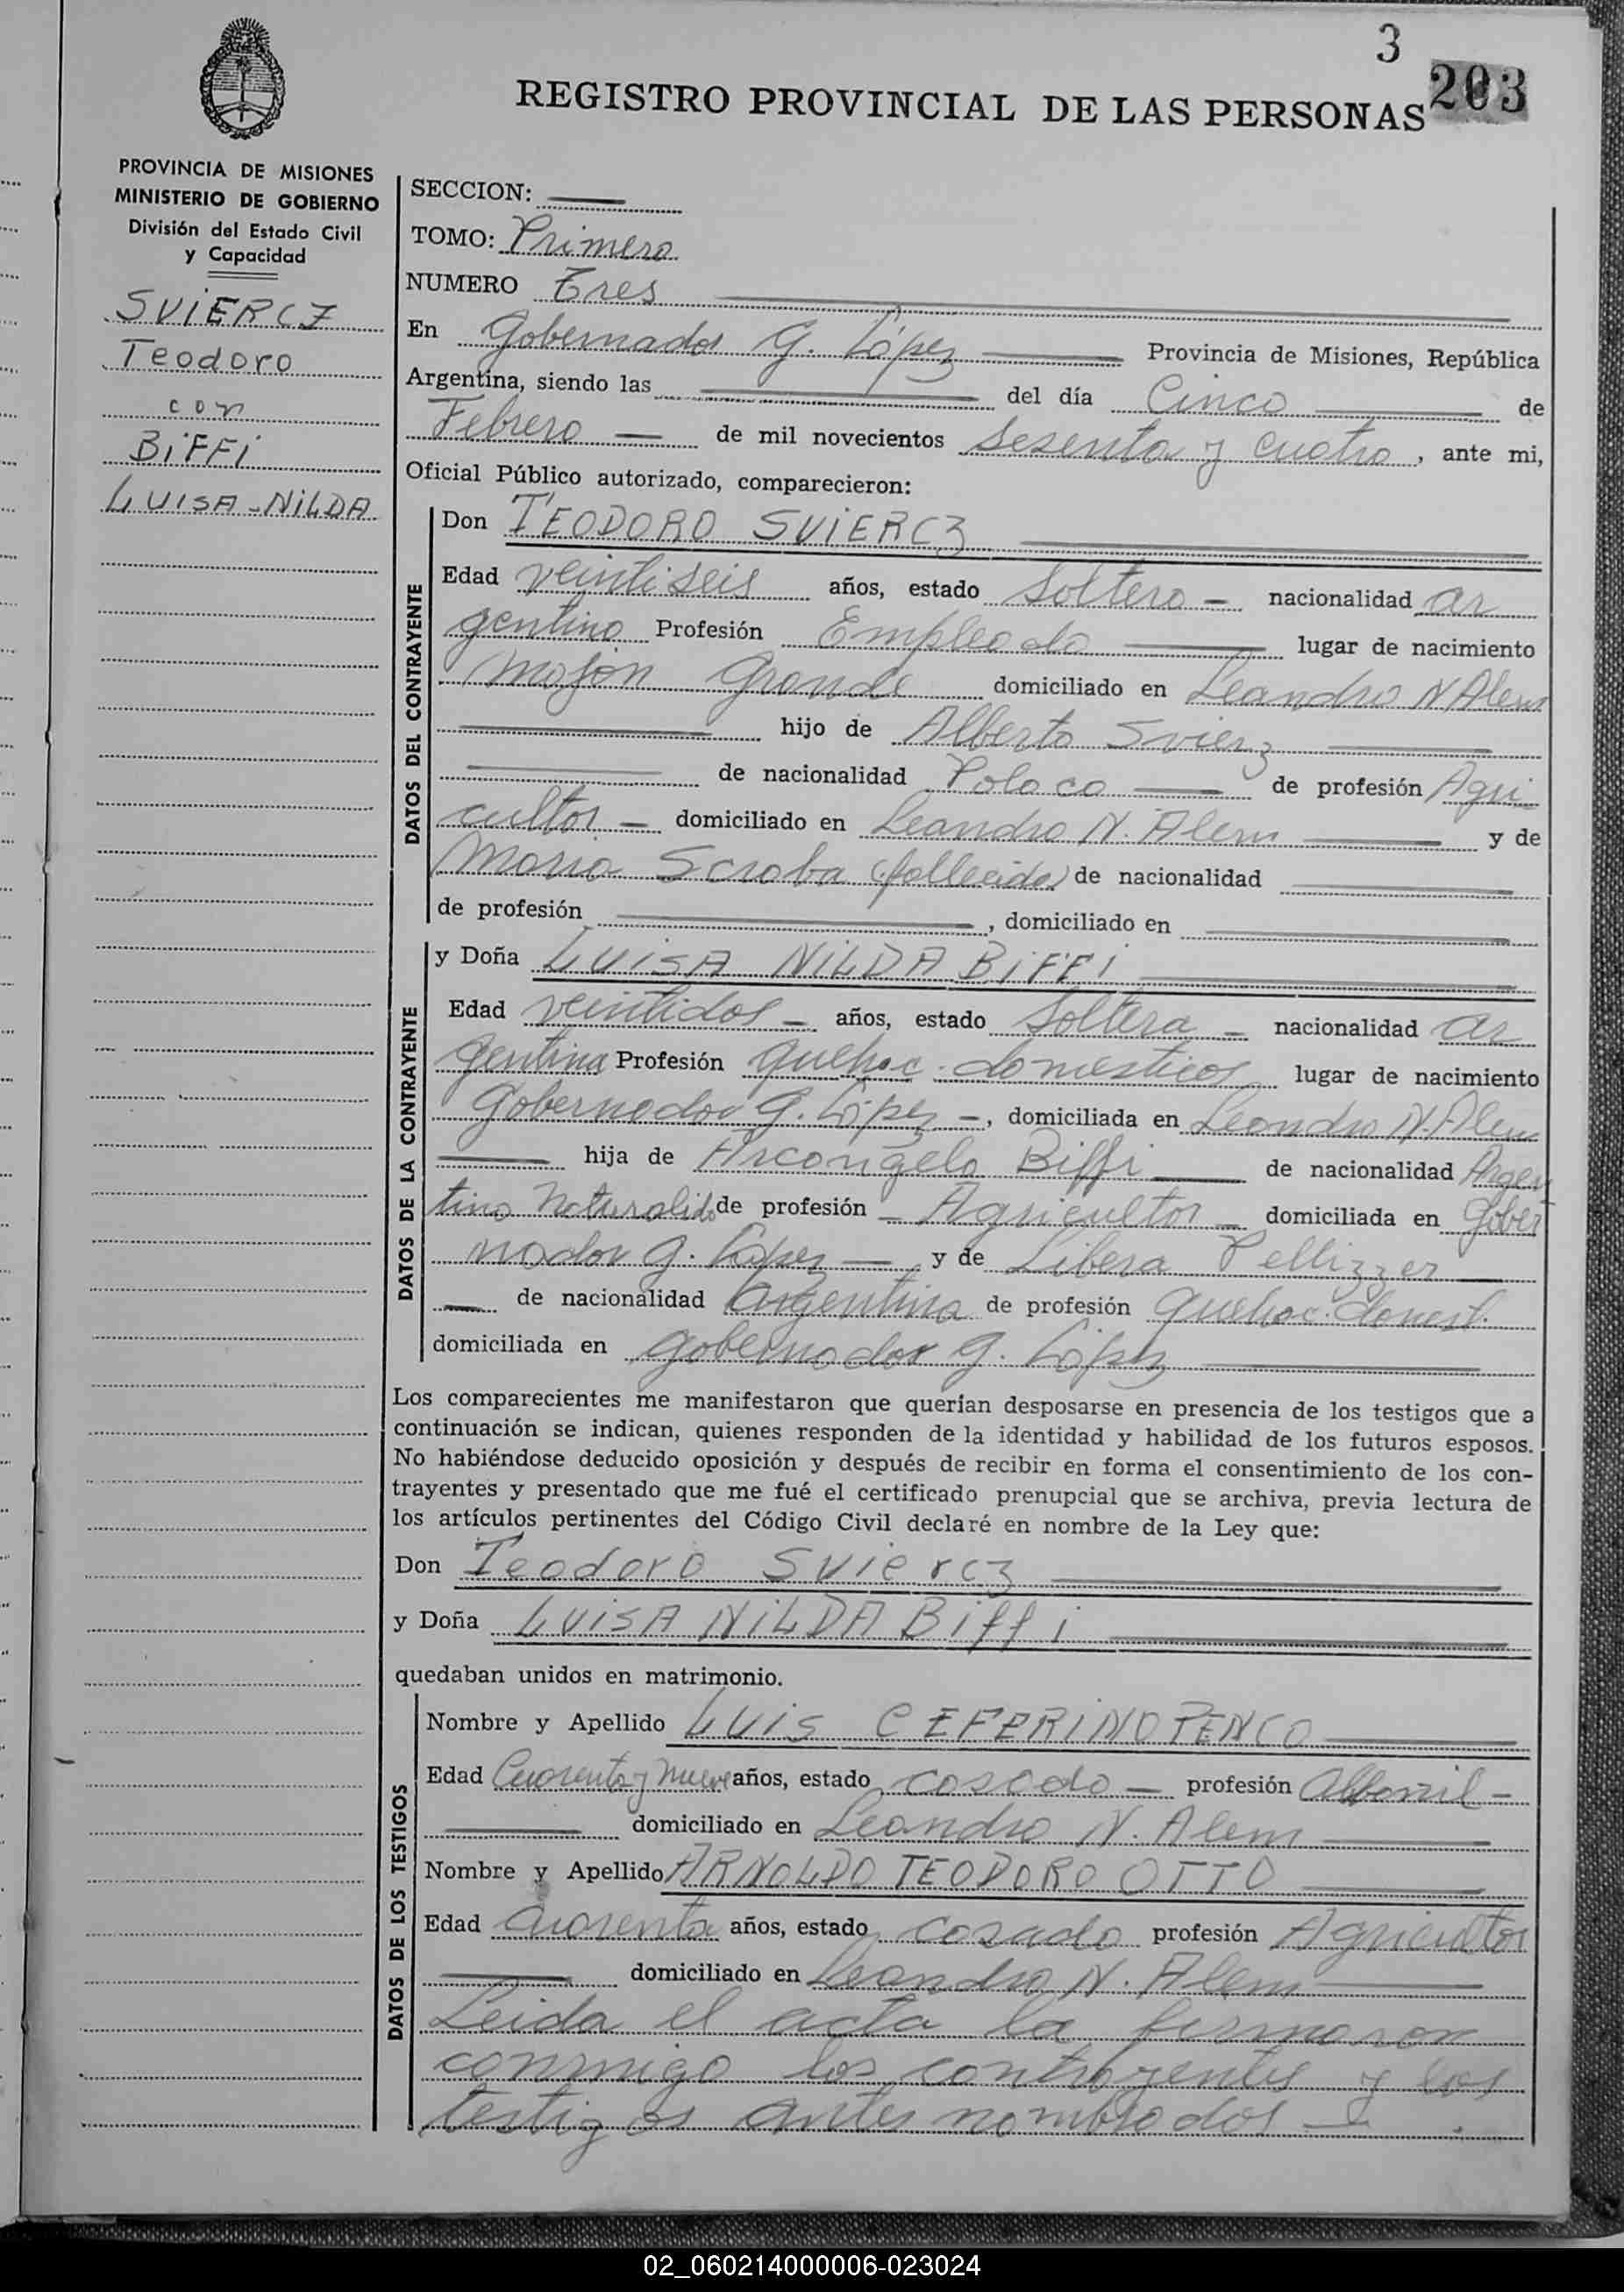 3
203
REGISTRO PROVINCIAL DE LAS PERSONAS
PROVINCIA DE MISIONES
MINISTERIO DE GOBIERNO
División del Estado Civil
y Capacidad
SVIERCZ
Teodoro
con
BiFFi
LUISA-NILDA
SECCION:
TOMO: Primero
NUMERO Tres
En Gobernador G. López Provincia de Misiones, República
Argentina, siendo las del día Cinco de
Febrero de mil novecientos Sesenta y cuatro, ante mi,
Oficial Público autorizado, comparecieron:
DATOS DEL CONTRAYENTE
Don TEODORO SVIERCZ
Edad veintiseis años, estado Soltero nacionalidad ar
gentino Profesión Empleado lugar de nacimiento
Mojón Grande domiciliado en Leandro N Alem
hijo de Alberto Svierz
de nacionalidad Polaca de profesión Agri
cultor domiciliado en Leandro N. Alem y de
Maria Scroba (fallecida) de nacionalidad
de profesión , domiciliado en
DATOS DE LA CONTRAYENTE
y Doña LUISA NILDA BIFFI
Edad veintidos años, estado Soltera nacionalidad ar
gentina Profesión quehac. domesticos lugar de nacimiento
Gobernador G. López, domiciliada en Leandro N. Alem
hija de Arcangelo Biffi de nacionalidad Argen
tino Naturalido de profesión Agricultor domiciliada en Gober
nador G. López y de Libera Pellizzer
de nacionalidad Argentina de profesión quehac. domest.
domiciliada en gobernador G. López
Los comparecientes me manifestaron que querían desposarse en presencia de los testigos que a
continuación se indican, quienes responden de la identidad y habilidad de los futuros esposos.
No habiéndose deducido oposición y después de recibir en forma el consentimiento de los con-
trayentes y presentado que me fué el certificado prenupcial que se archiva, previa lectura de
los artículos pertinentes del Código Civil declaré en nombre de la Ley que:
Don Teodoro Sviercz
y Doña LUISA NILDA Biffi
quedaban unidos en matrimonio.
DATOS DE LOS TESTIGOS
Nombre y Apellido LUIS CEFERINO PENCO
Edad Cuarenta y nueve años, estado casado profesión Albañil
domiciliado en Leandro N. Alem
Nombre y Apellido ARNOLDO TEODORO OTTO
Edad Cuarenta años, estado casado profesión Agricultor
domiciliado en Leandro N. Alem
Leida el acta la firmaron
conmigo los contrayentes y los
testigos antes nombrados
02_060214000006-023024